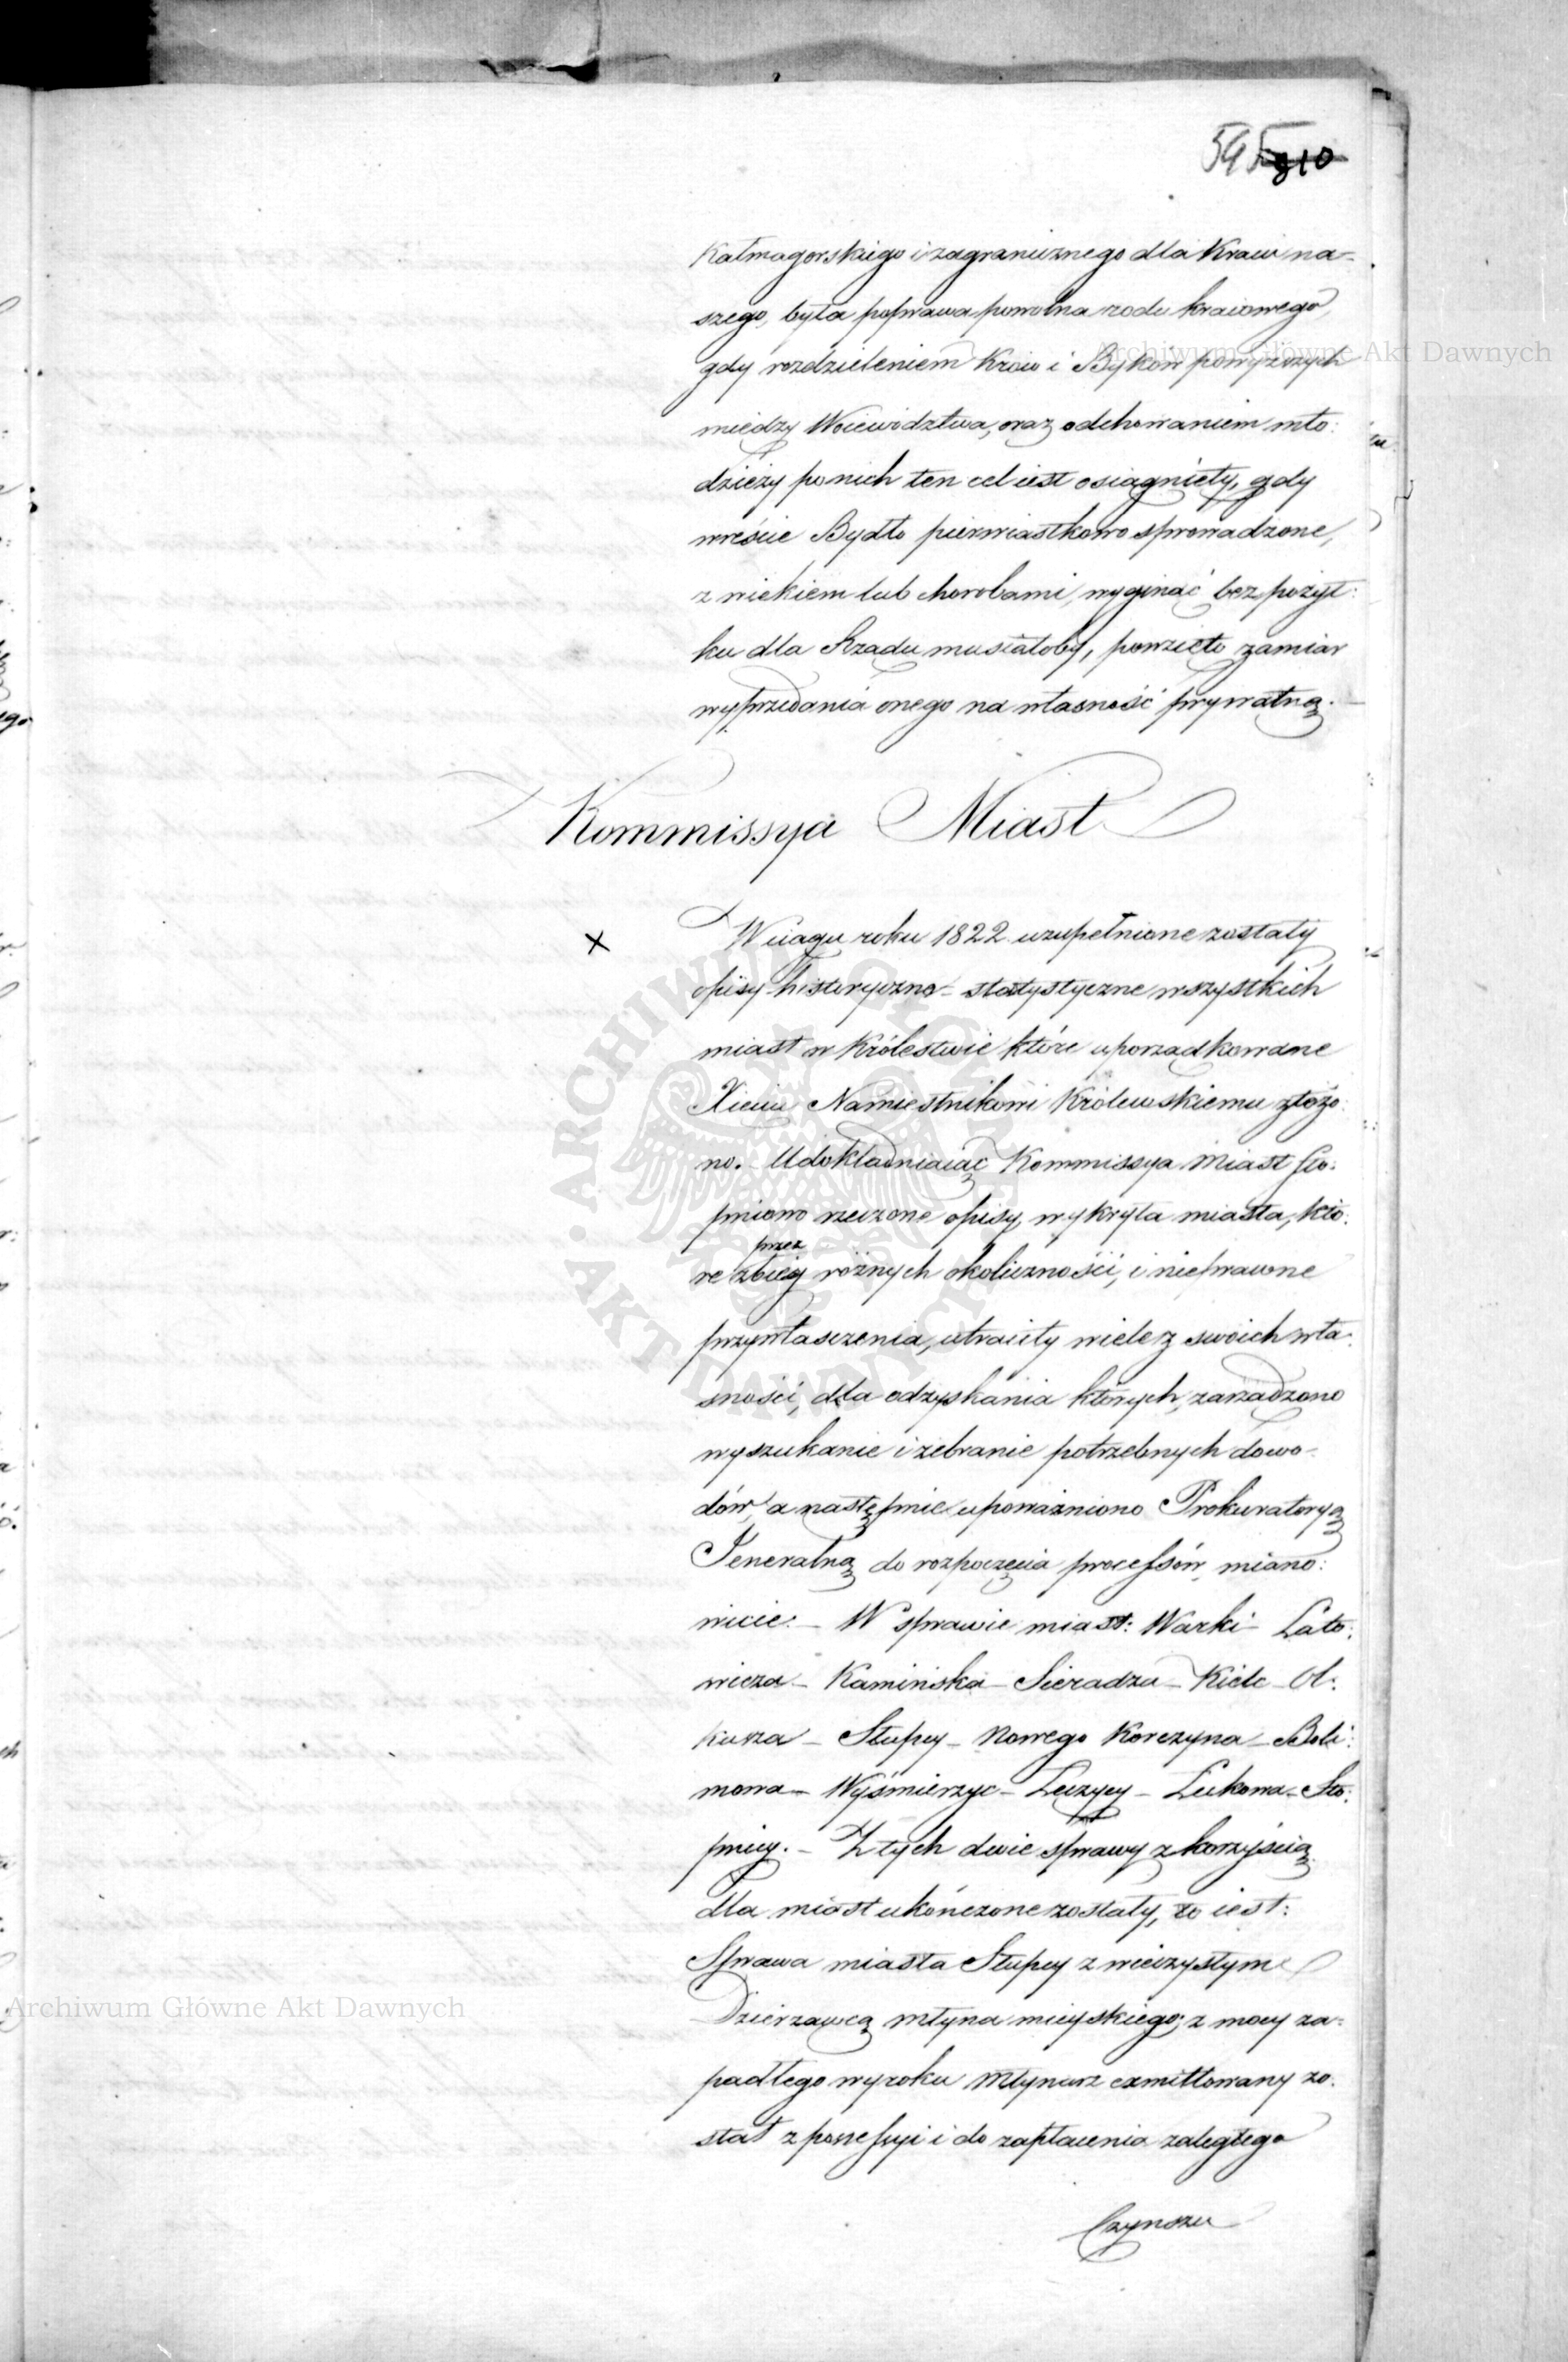 595 810
Kałmagorskiego i zagranicznego dla Kraiu na-
szego, była poprawa powolna rodu kraiowego,
gdy rozdzieleniem Krów i Byków powyższych
między Woiewództwa, oraz odchowaniem mło:
dzieży po nich ten cel iest osiągnięty, gdy
wreście Bydło pierwiastkowo sprowadzone,
z wiekiem lub chorobami, wyginąć bez pożyt:
ku dla Rządu musiałoby, powzięto zamiar
wyprzedania onego na własność prywatną. —
Kommissya Miast
x W ciągu roku 1822 uzupełnione zostały
opisy historyczno - statystyczne wszystkich
miast w Królestwie które uporządkowane
Xięciu Namiestnikowi Królewskiemu złożo:
no. - Udokładniaiąc Kommissya Miast
rzeczone opisy, wykryła miasta, któ:
przez
re zbieg różnych okoliczności, i nieprawne
przywłasczenia, utraciły wiele z swoich wła:
sności, dla odzyskania których, zarządzono
wyszukanie i zebranie potrzebnych dowo-
dów, a następnie upoważniono Prokuratoryą
Jeneralną do rozpoczęcia processów, miano:
wicie. - W sprawie miast: Warki - Lato:
wicza - Kamińska - Sieradza - Kielc - Ol:
kusza - Słupcy - Nowego Korczyna - Boli:
mowa - Wyśmierzyc - Łęczycy - Łukowa - Sto:
pnicy. - Z tych dwie sprawy z korzyścią
dla miast ukończone zostały, to iest:
Sprawa miasta Słupcy z wieczystym
Dzierżawcą młyna mieyskiego; z mocy za:
padłego wyroku Młynarz exmittowany zo:
stał z possessyi i do zapłacenia zaległego
Czynszu
Archiwum Główne Akt Dawnych
Archiwum Główne Akt Dawnych
ARCHIWUM GŁÓWNE
AKT DAWNYCH